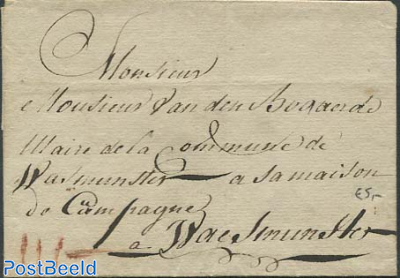 Monsieur
Monsieur Van den Bogaerde
Maire de la Commune de
Wasmunster a sa maison
de Campagne
a Waesmunster
PostBeeld